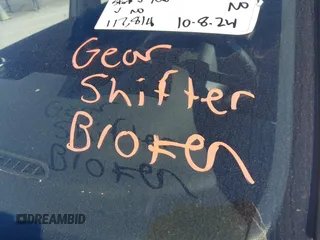 NO
J NO
112,814 10-8-24
Gear
Shifter
Broken
DREAMBID